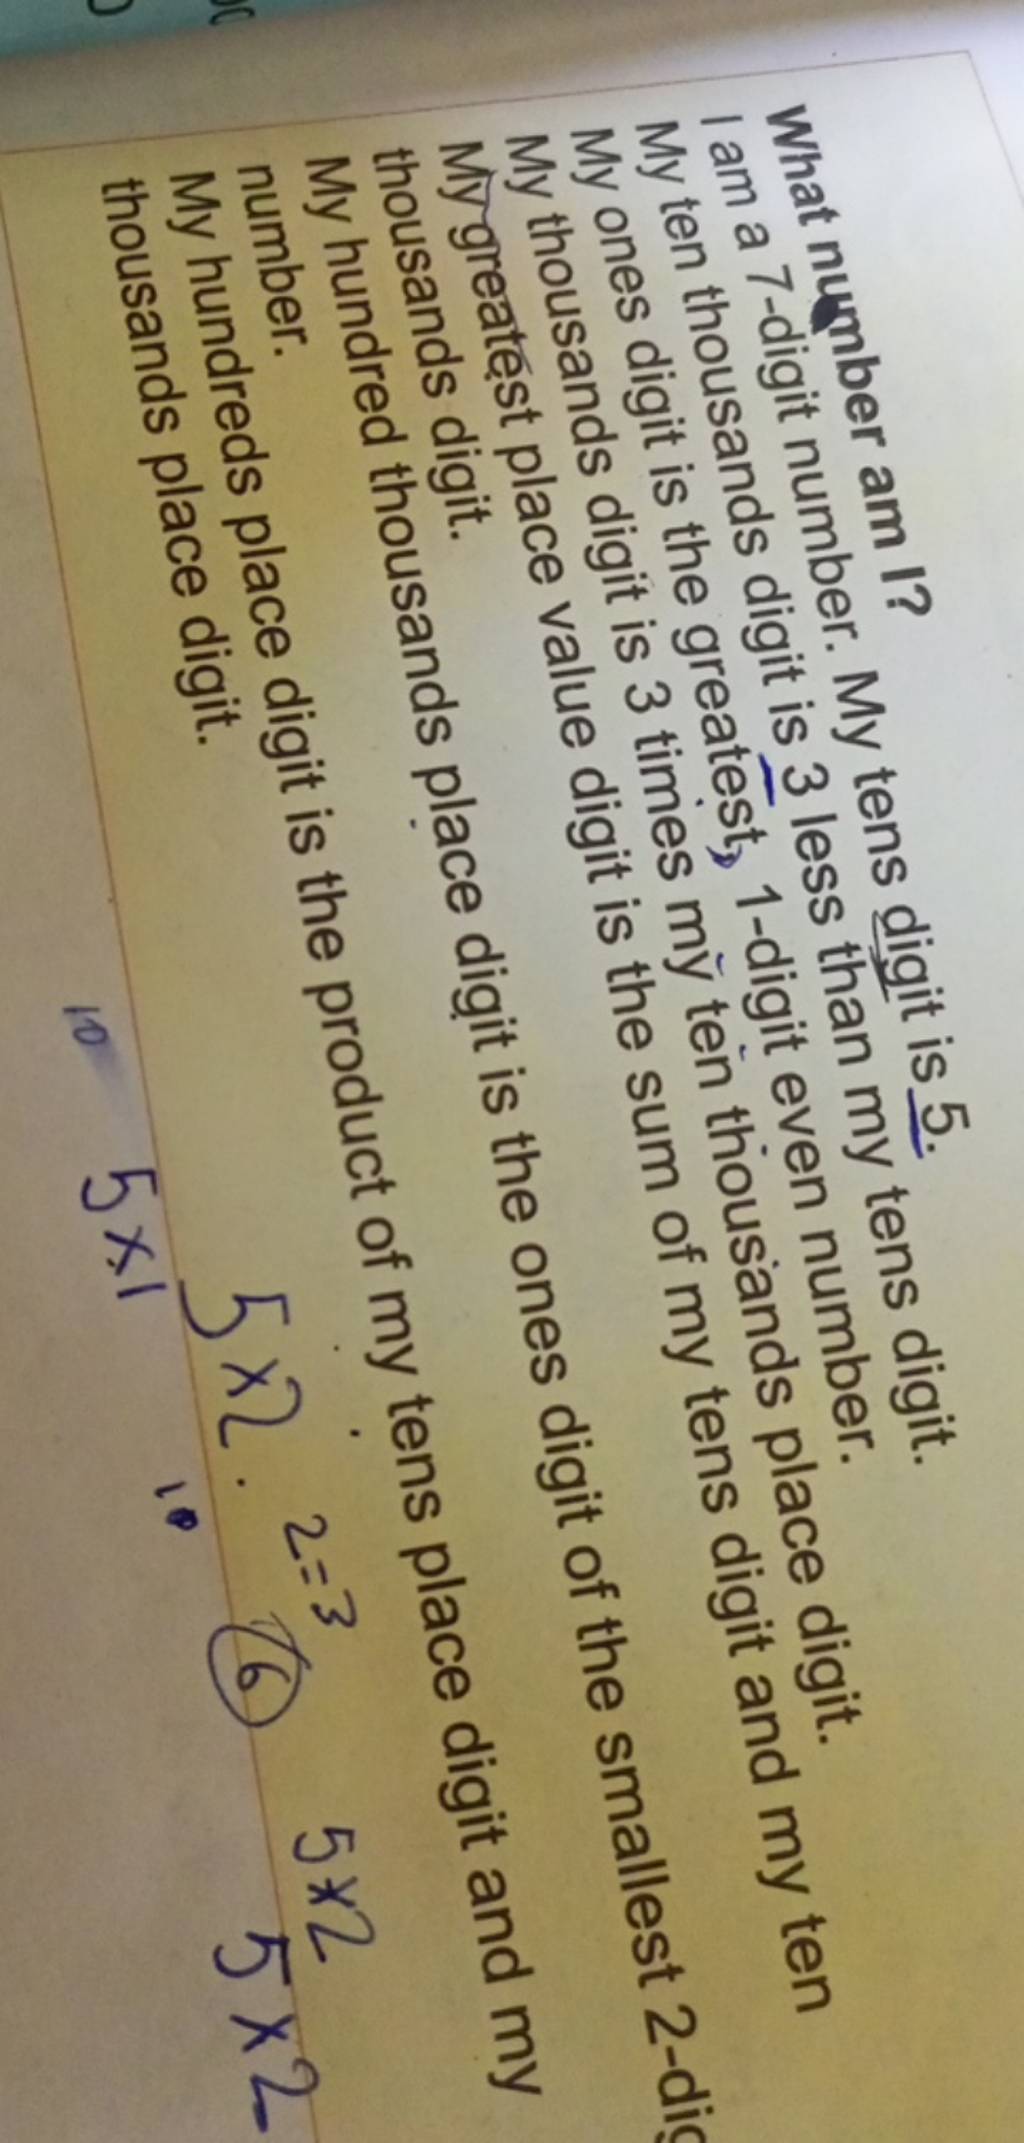 What number am I?
I am a 7-digit number. My tens digit is 5.
My ten thousands digit is 3 less than my tens digit.
My ones digit is the greatest, 1-digit even number.
My thousands digit is 3 times my ten thousands place digit.
My greatest place value digit is the sum of my tens digit and my ten
thousands digit.
My hundred thousands place digit is the ones digit of the smallest 2-dig
number.
My hundreds place digit is the product of my tens place digit and my
thousands place digit.
2=3
5×2
5×2
6
5×2
10
5×1
10